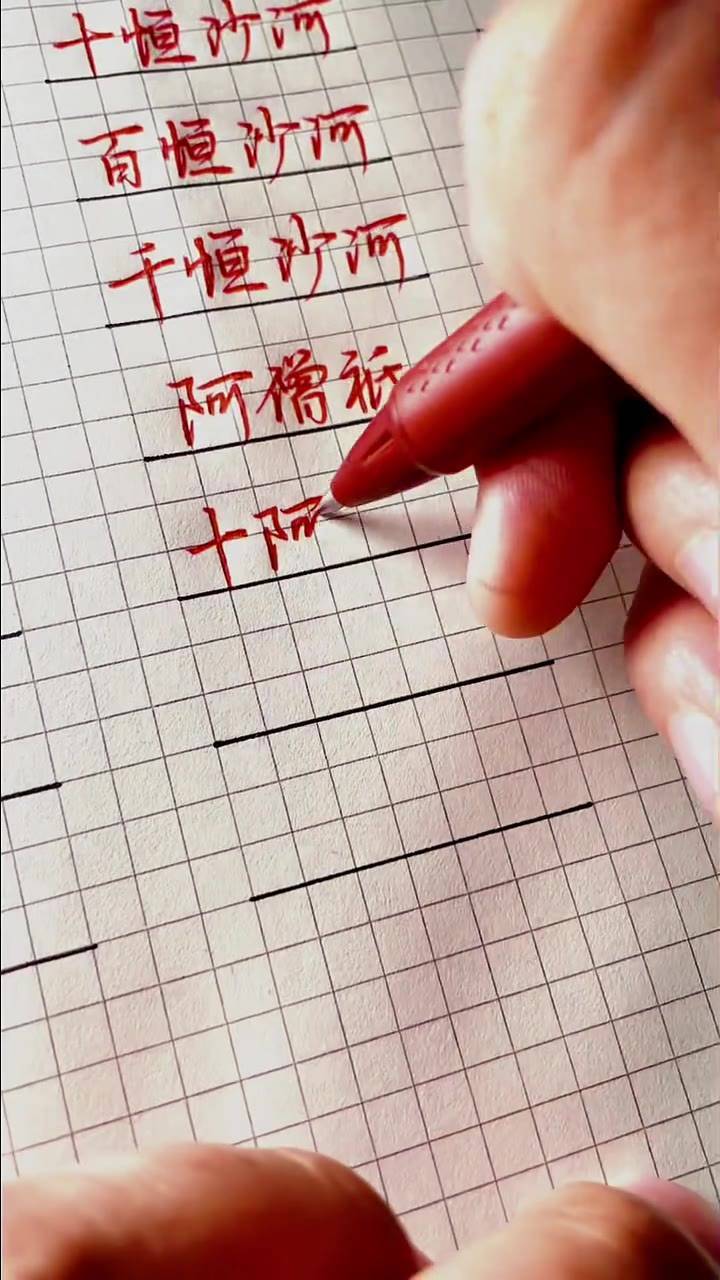 十恒沙河
百恒沙河
千恒沙河
阿僧祇
十阿